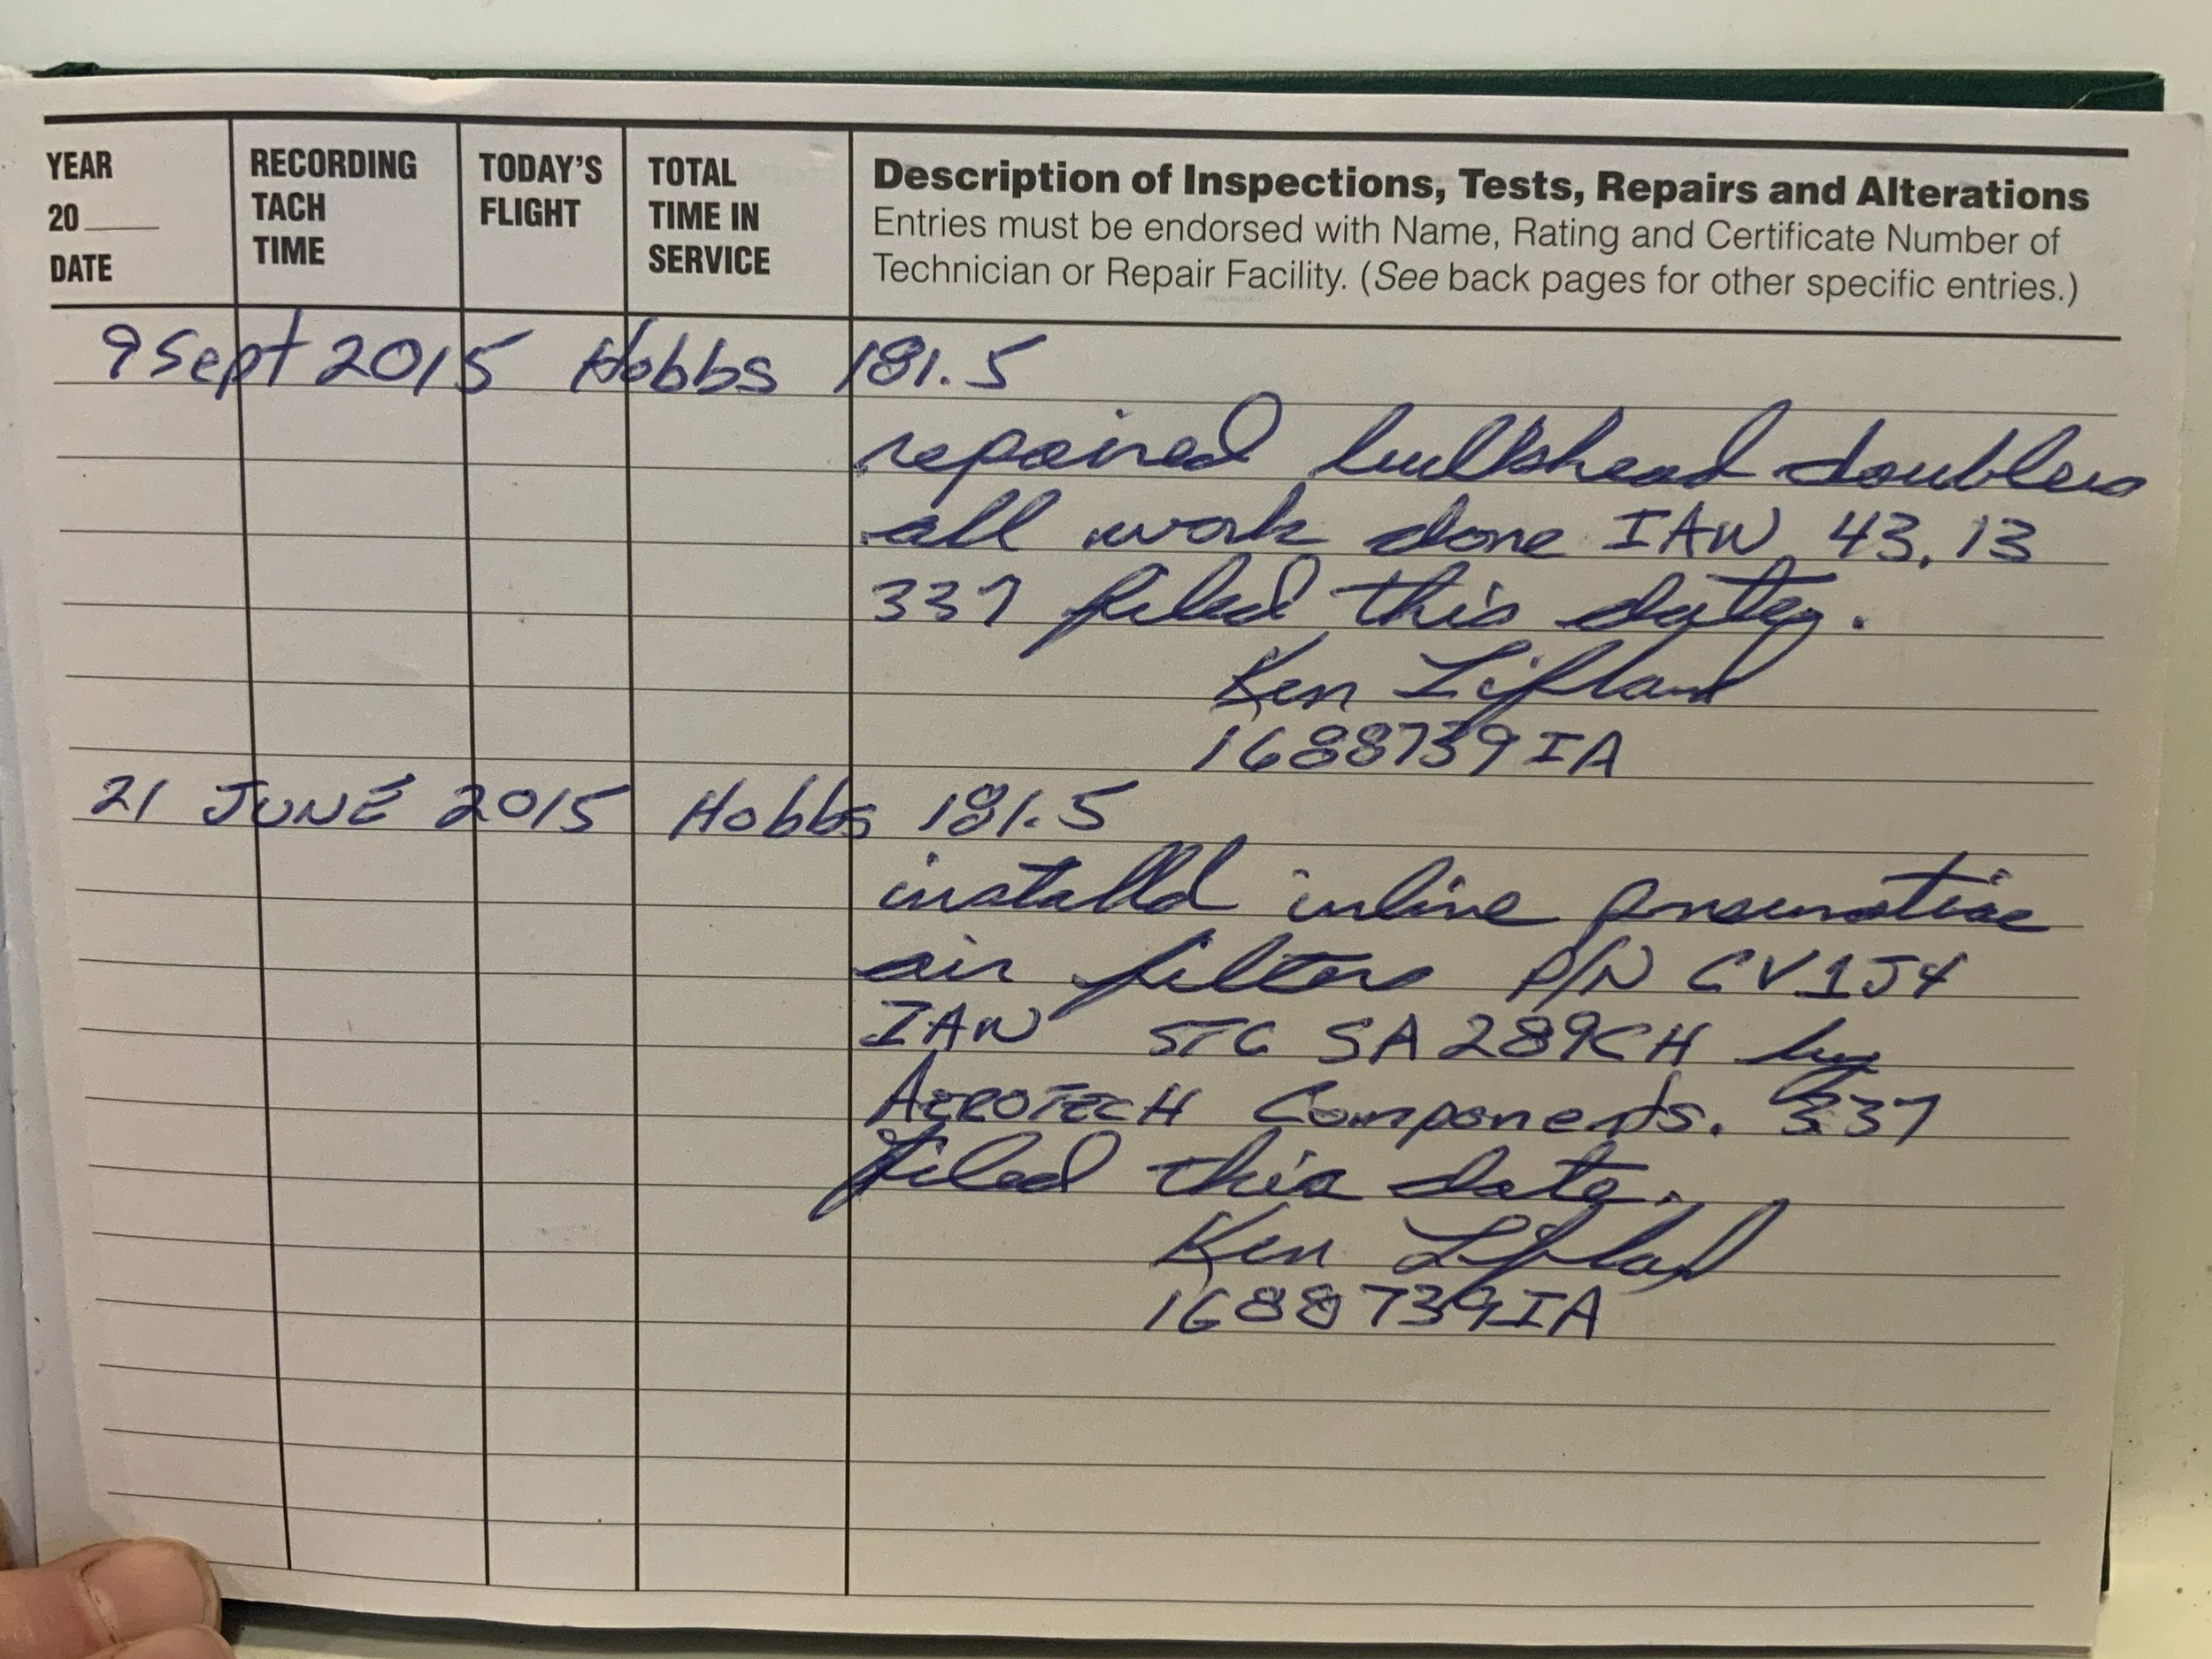 YEAR
20____
DATE
RECORDING
TACH
TIME
TODAY'S
FLIGHT
TOTAL
TIME IN
SERVICE
Description of Inspections, Tests, Repairs and Alterations
Entries must be endorsed with Name, Rating and Certificate Number of
Technician or Repair Facility. (See back pages for other specific entries.)
9 Sept 2015 Hobbs 181.5
repaired bulkshead doublers
all work done IAW 43.13
337 filed this date.
Ken Lifland
1688739IA
21 JUNE 2015 Hobbs 181.5
installd inline pneumatic
air filters P/N CV1J4
IAW STC SA289CH by
AEROTECH Components. 337
filed this date.
Ken Lifland
1688739IA